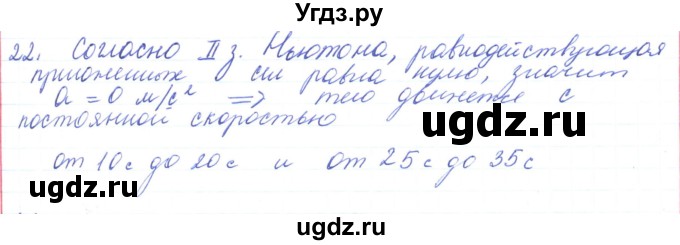 Угдз.ру
22. Согласно II з. Ньютона, равнодействующая
приложенных сил равна нулю, значит
a = 0 м/с² => тело движется с
постоянной скоростью
ugdz.ru
ugdz.ru
от 10с до 20с и от 25с до 35с
ugdz.ru
ugdz.ru